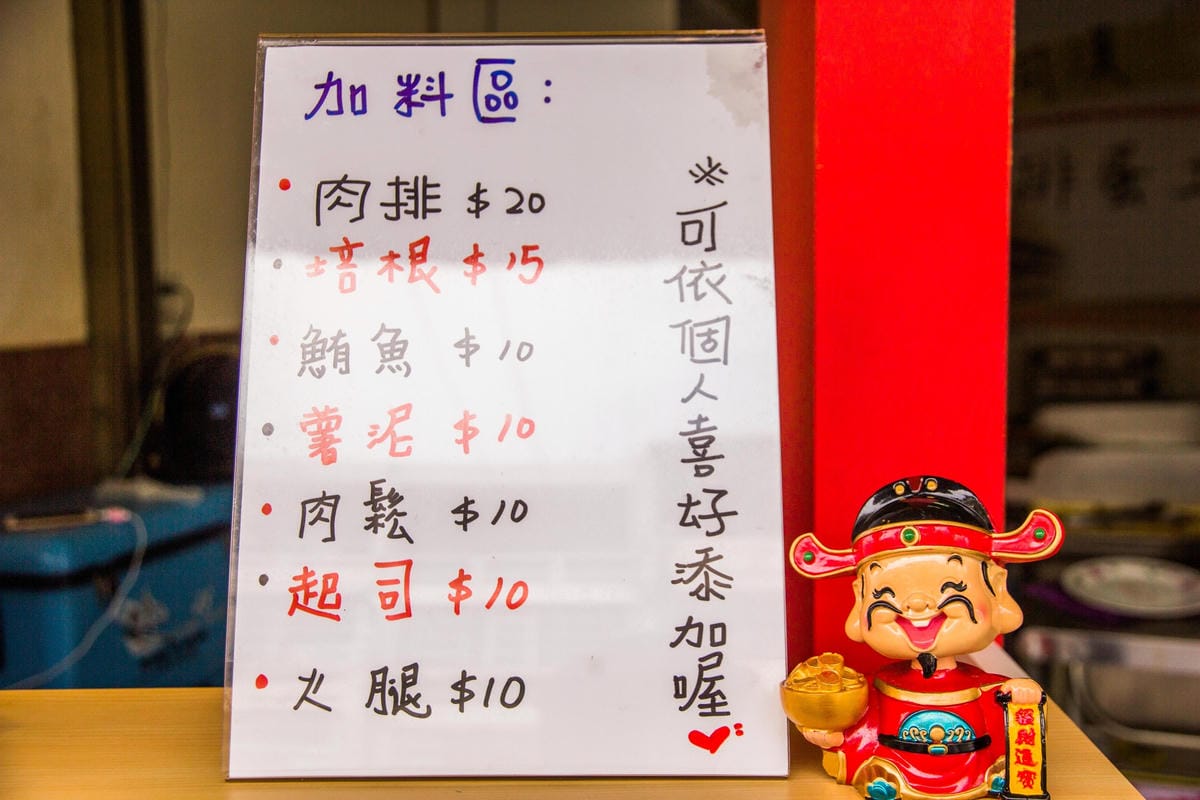 加料區:
肉排 $20
培根 $15
鮪魚 $10
薯泥 $10
肉鬆 $10
起司 $10
火腿 $10
※可依個人喜好添加喔
招財進寶